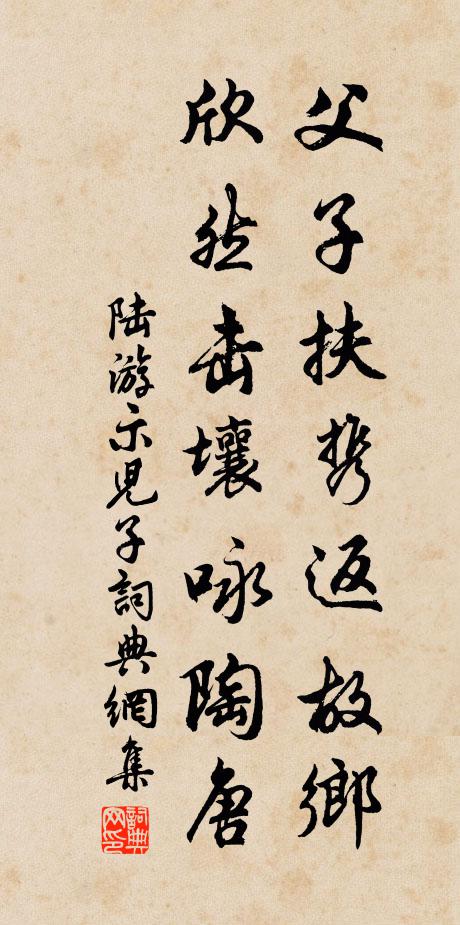 父子扶携返故鄉
欣然击壤咏陶唐
陆游示児子詞典網集
詞典网印